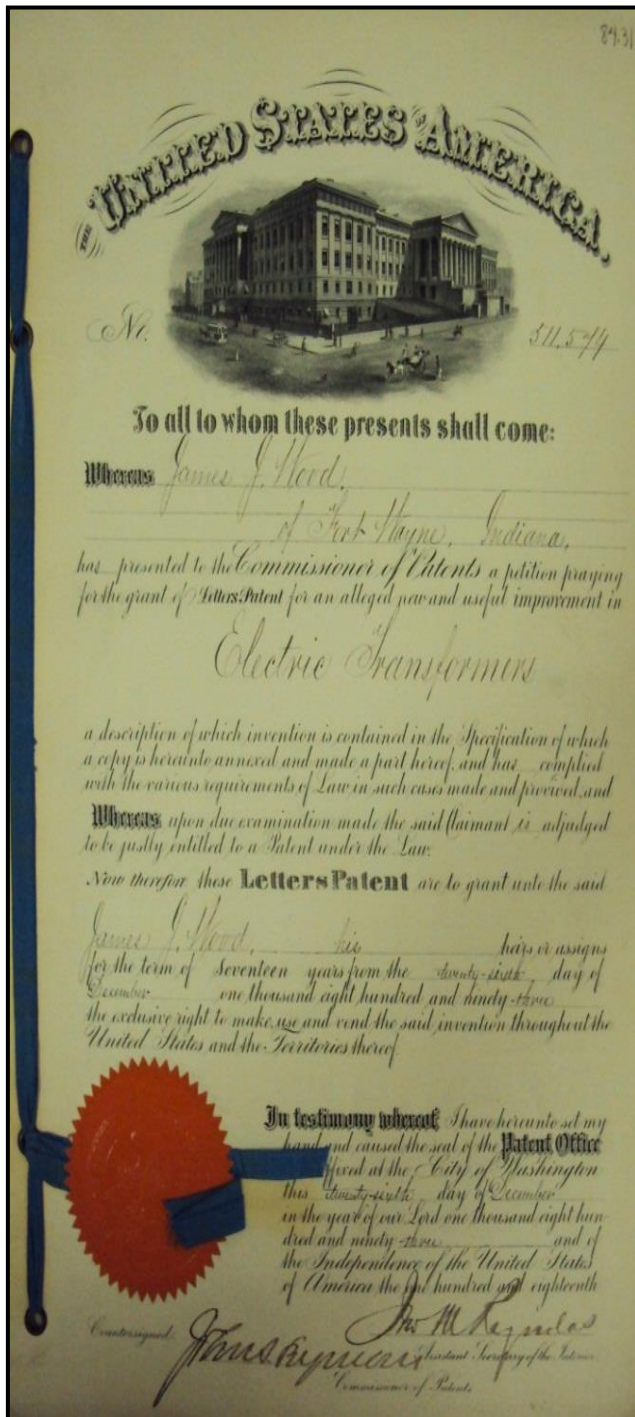 84.31
THE UNITED STATES OF AMERICA.
No. 511,574
To all to whom these presents shall come:
Whereas James J. Wood,
of Fort Wayne, Indiana,
has presented to the Commissioner of Patents a petition praying
for the grant of Letters Patent for an alleged new and useful improvement in
Electric Transformers
a description of which invention is contained in the Specification of which
a copy is hereunto annexed and made a part hereof, and has complied
with the various requirements of Law in such cases made and provided, and
Whereas upon due examination made the said Claimant is adjudged
to be justly entitled to a Patent under the Law.
Now therefore these Letters Patent are to grant unto the said
James J. Wood, his heirs or assigns
for the term of Seventeen years from the twenty-sixth day of
December one thousand eight hundred and ninety-three
the exclusive right to make, use and vend the said invention throughout the
United States and the Territories thereof
In testimony whereof, I have hereunto set my
hand and caused the seal of the Patent Office
ffixed at the City of Washington
this twenty-sixth day of December
in the year of our Lord one thousand eight hun-
dred and ninety-three and of
the Independence of the United States
of America the one hundred and eighteenth
Countersigned: Jno. M. Reynolds
Assistant Secretary of the Interior
John S. Seymour
Commissioner of Patents